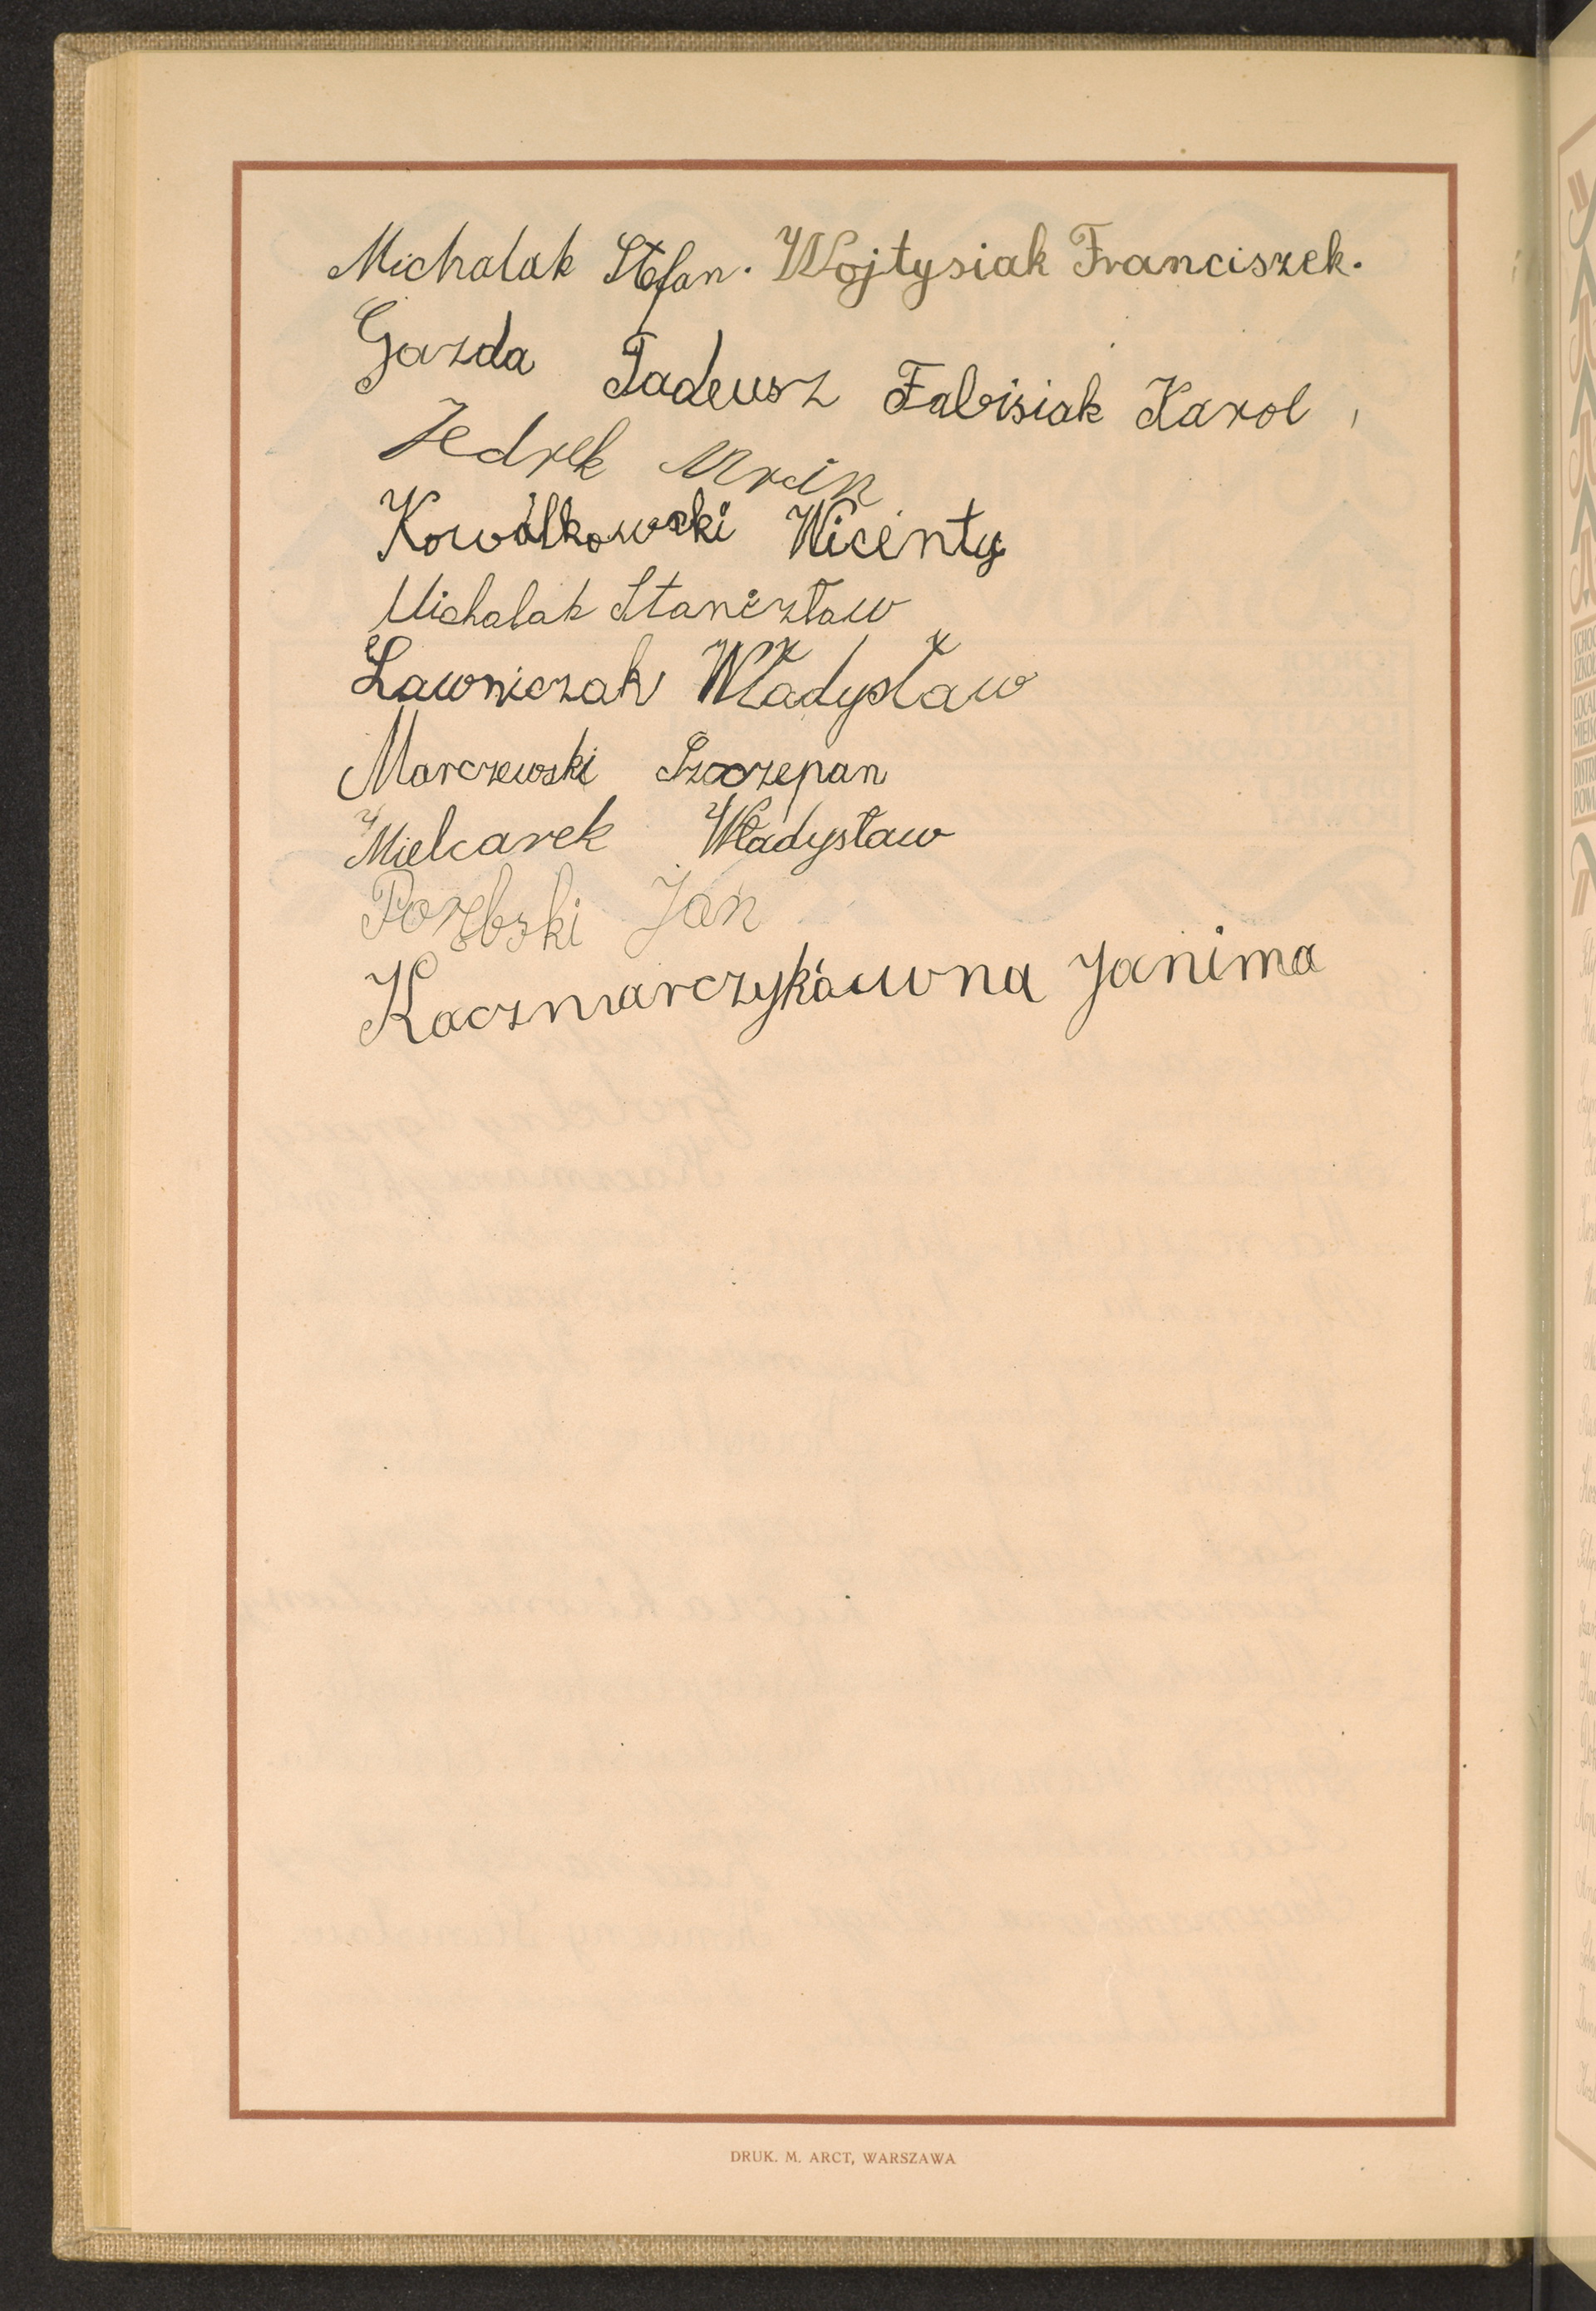 Michalak Stefan. Wojtysiak Franciszek.
Gazda Tadeusz Fabisiak Karol,
Jedrek
Kowalkowski Wicenty
Michalak Stanizław
Ławniczak Władysław
Marczewski Szczepan
Mielcarek Władysław
Jan
Kaczmarczykówna Janima
DRUK. M. ARCT, WARSZAWA